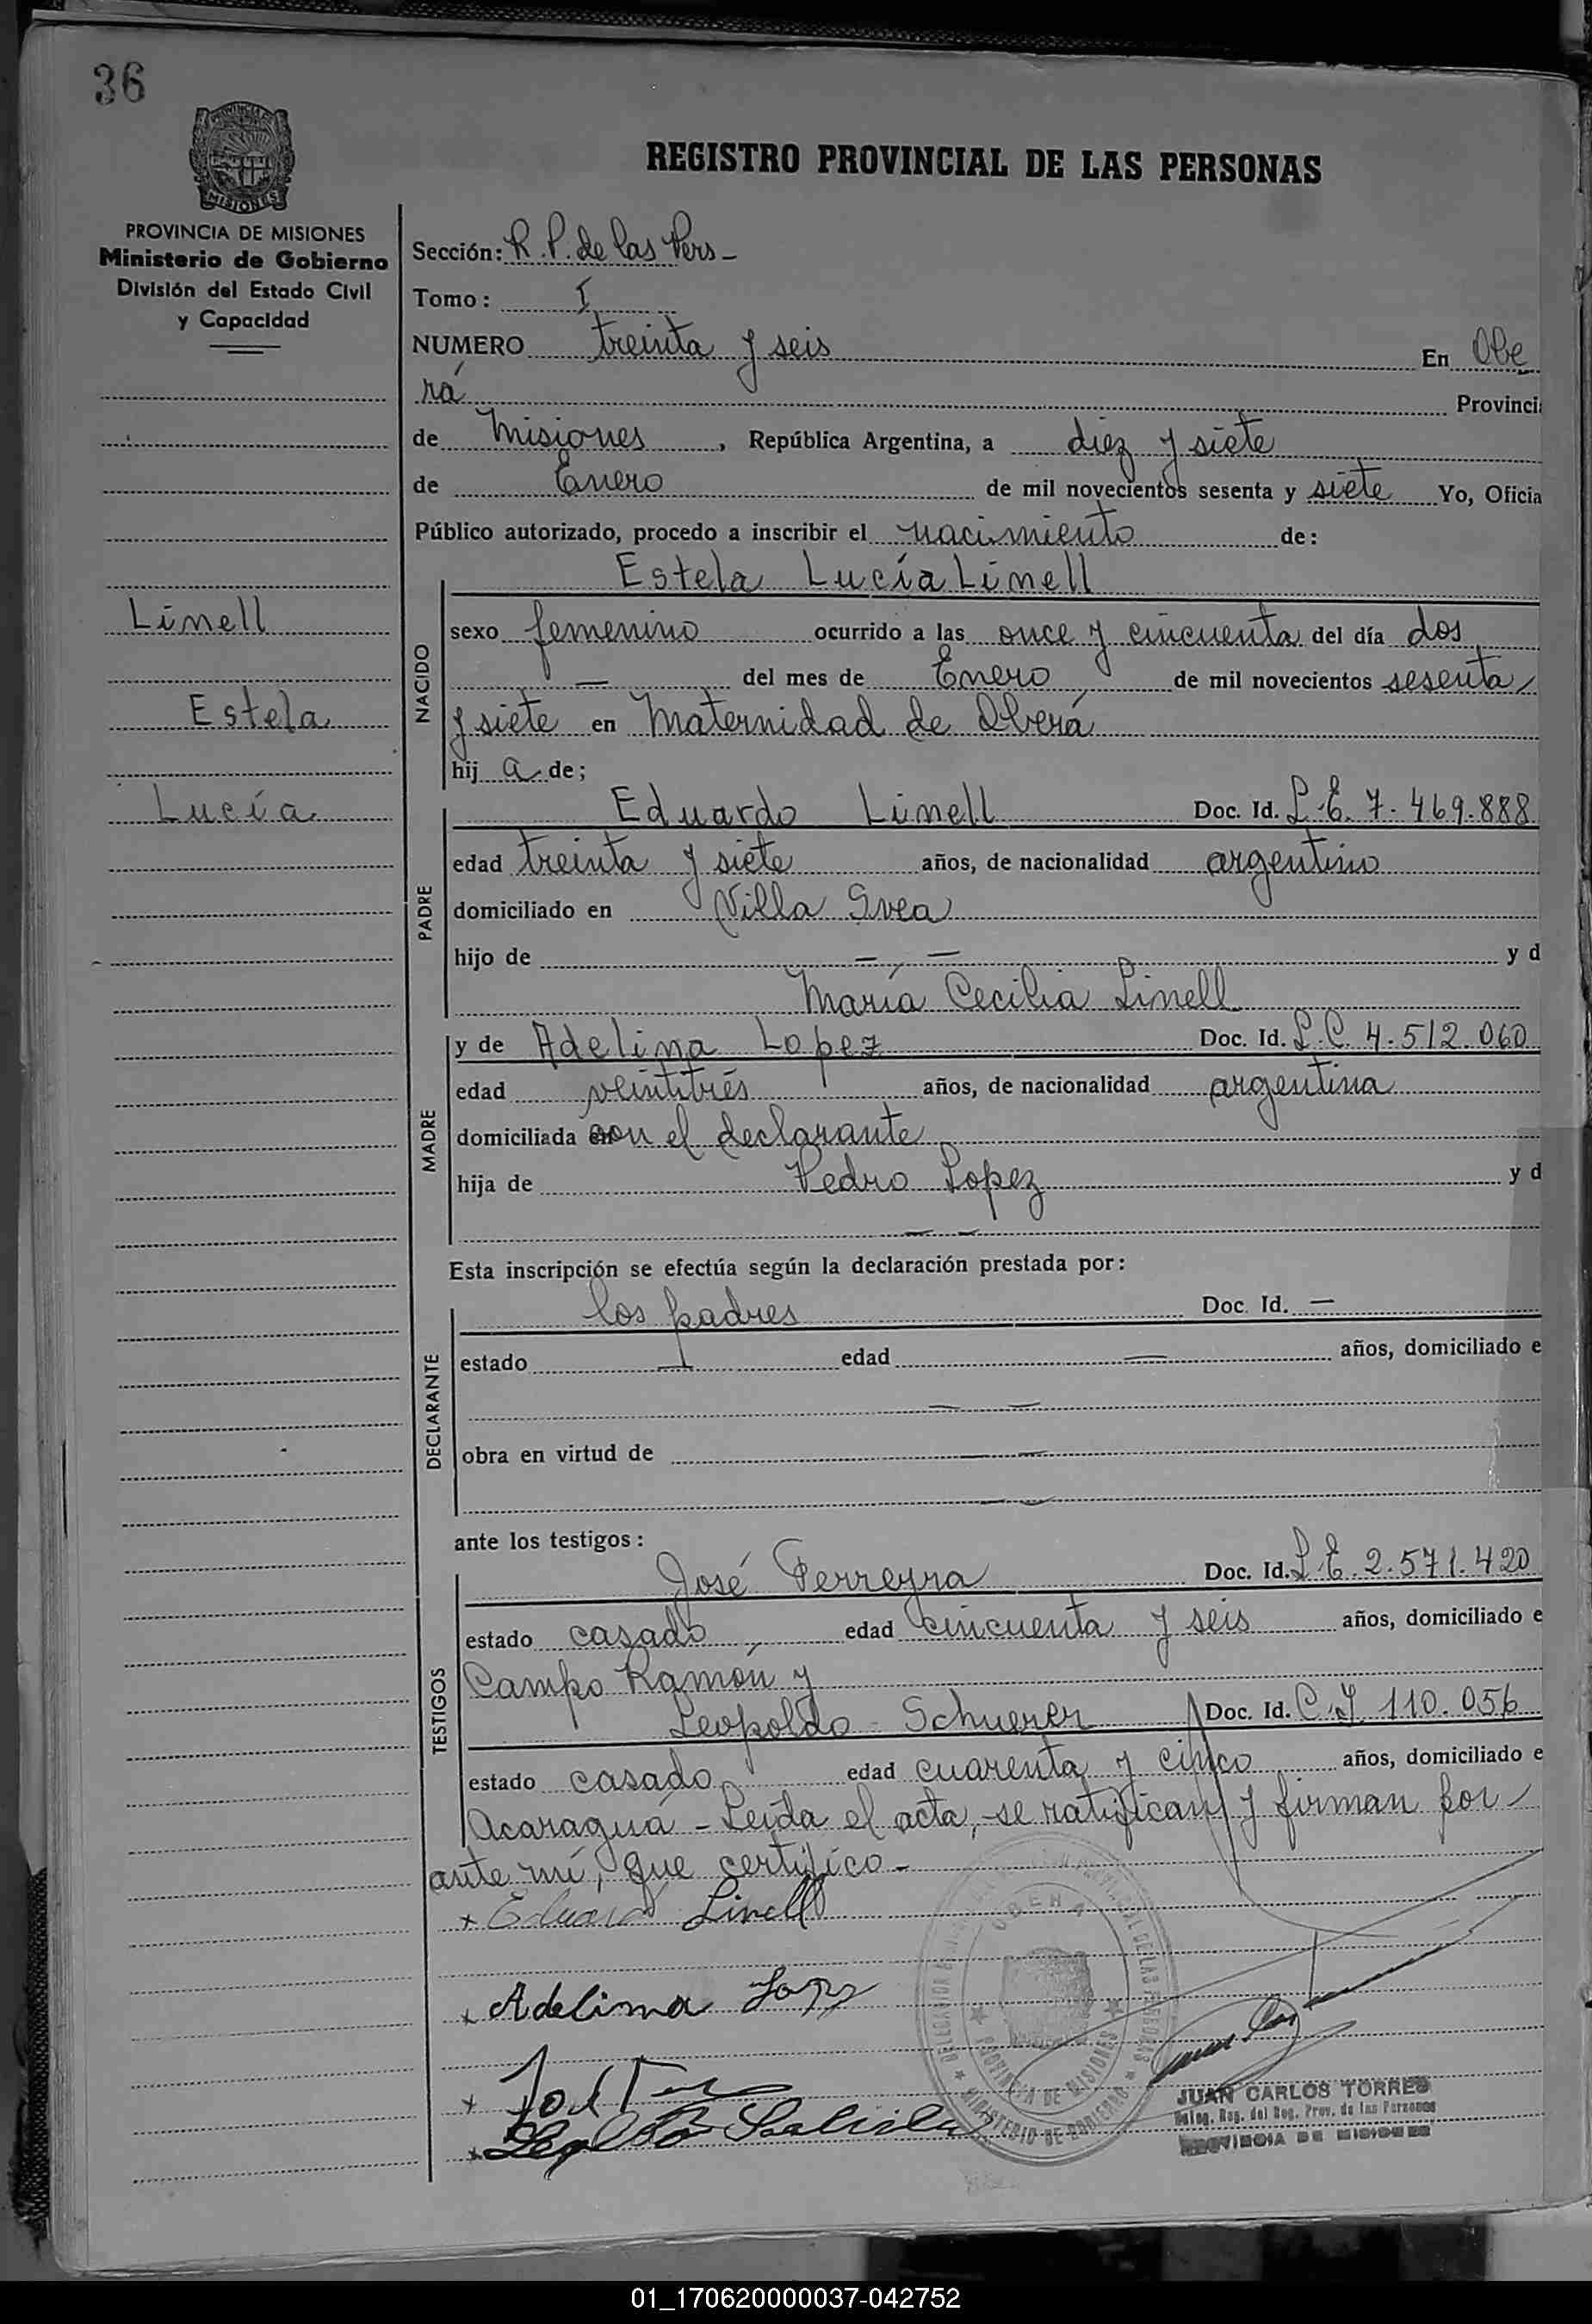 36
PROVINCIA DE
MISIONES
PROVINCIA DE MISIONES
Ministerio de Gobierno
División del Estado Civil
y Capacidad
REGISTRO PROVINCIAL DE LAS PERSONAS
Sección: R. P. de las Pers -
Tomo: I
NUMERO treinta y seis En Obe
rá Provinci
de Misiones, República Argentina, a diez y siete
de Enero de mil novecientos sesenta y siete Yo, Oficia
Público autorizado, procedo a inscribir el nacimiento de:
Estela Lucía Linell
Linell
Estela
Lucía
NACIDO
sexo femenino ocurrido a las once y cincuenta del día dos
— del mes de Enero de mil novecientos sesenta
y siete en Maternidad de Oberá
hij a de;
PADRE
Eduardo Linell Doc. Id. L. E. 7.469.888
edad treinta y siete años, de nacionalidad argentino
domiciliado en Villa Svea
hijo de — — y d
María Cecilia Linell
MADRE
y de Adelina Lopez Doc. Id. L. C. 4.512.060
edad veintitrés años, de nacionalidad argentina
domiciliada con el declarante
hija de Pedro Lopez y d
— —
Esta inscripción se efectúa según la declaración prestada por:
DECLARANTE
los padres Doc. Id. —
estado — edad — años, domiciliado e
— —
obra en virtud de — —
— —
ante los testigos:
TESTIGOS
José Ferreyra Doc. Id. L. E. 2.571.420
estado casado, edad cincuenta y seis años, domiciliado e
Campo Ramón y
Leopoldo Schuerer Doc. Id. C. I. 110.056
estado casado edad cuarenta y cinco años, domiciliado e
Acaraguá - Leída el acta, se ratifican y firman por
ante mí, que certifico -
x Eduardo Linell
x Adelina Lopz
OBERA
PROVINCIA DE MISIONES
MINISTERIO DE GOBIERNO
JUAN CARLOS TORRES
Deleg. Reg. del Reg. Prov. de las Personas
PROVINCIA DE MISIONES
01_170620000037-042752